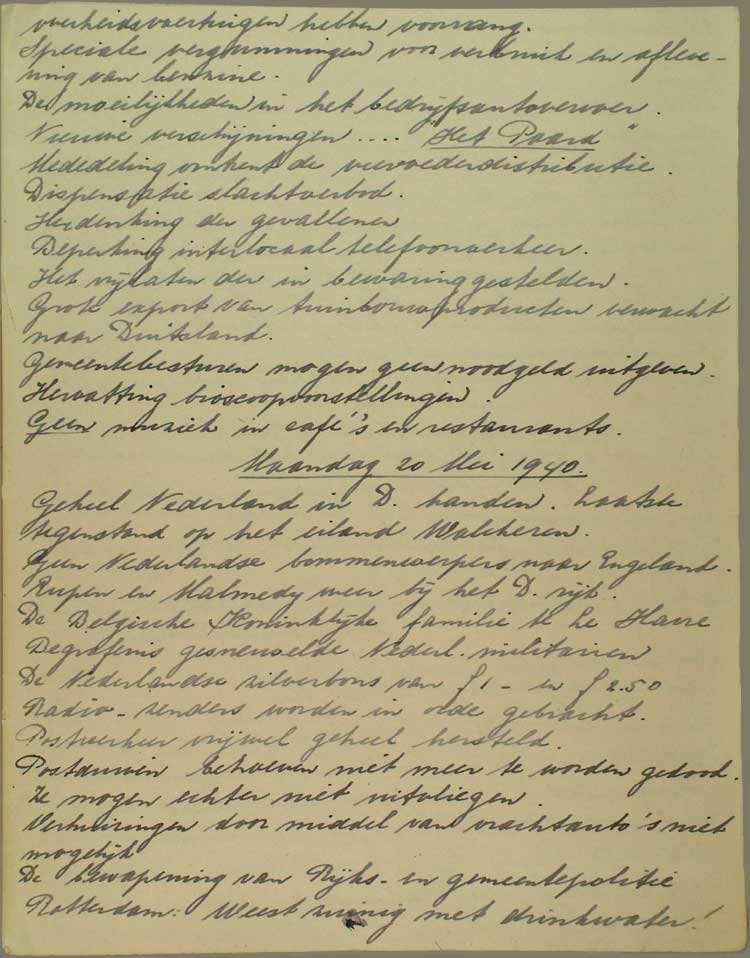 overheidsvoertuigen hebben voorrang.
Speciale vergunningen voor verbruik en afleve-
ring van benzine.
De moeilijkheden in het bedrijfsautovervoer.
Nieuwe verschijningen .... "Het Paard"
Mededeling omtrent de veevoederdistributie.
Dispensatie slachtverbod.
Herdenking der gevallenen
Beperking interlocaal telefoonverkeer.
Het vrijlaten der in bewaringgestelden.
Grote export van tuinbouwproducten verwacht
naar Duitsland.
Gemeentebesturen mogen geen noodgeld uitgeven.
Hervatting bioscoopvoorstellingen.
Geen muziek in café's en restaurants.
Maandag 20 Mei 1940.
Geheel Nederland in D. handen. Laatste
tegenstand op het eiland Walcheren.
Geen Nederlandse bommenwerpers naar Engeland.
Eupen en Malmedy weer bij het D. rijk.
De Belgische Koninklijke familie te Le Havre
Begrafenis gesneuvelde Nederl. militairen
De Nederlandse zilverbons van f 1- en f 2.50
Radio-zenders worden in orde gebracht.
Postverkeer vrijwel geheel hersteld.
Postduiven behoeven niet meer te worden gedood.
Ze mogen echter niet uitvliegen.
Verhuizingen door middel van vrachtauto's niet
mogelijk
De bewapening van Rijks- en gemeentepolitie
Rotterdam: Weest zuinig met drinkwater!